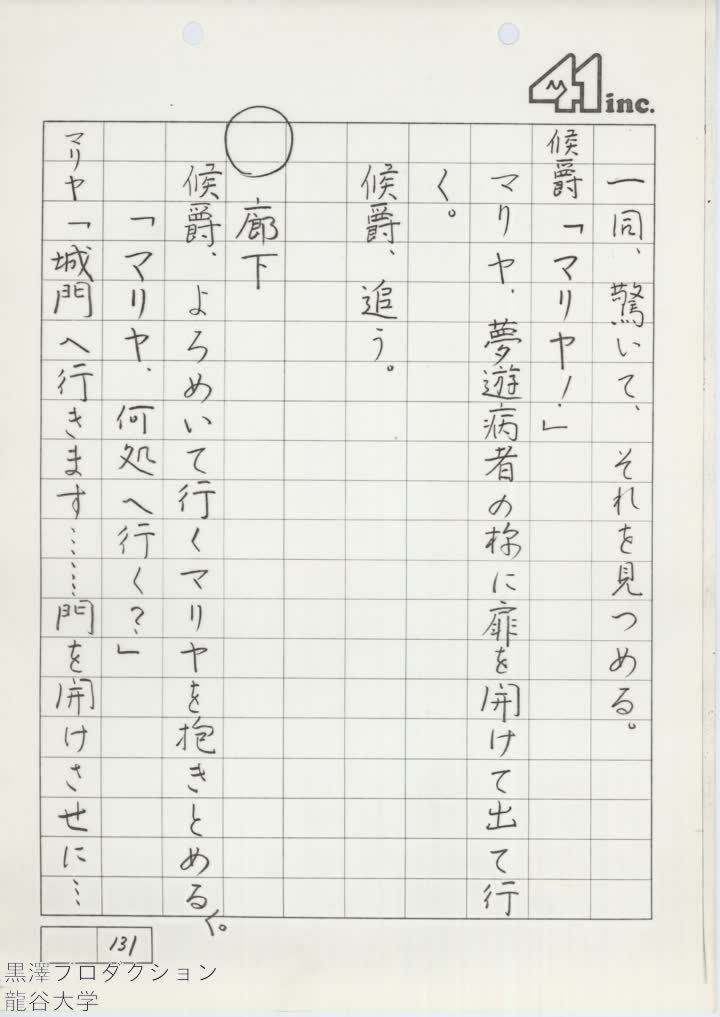 41 inc.
一同、驚いて、それを見つめる。
候爵「マリヤ！」
マリヤ、夢遊病者の様に扉を開けて出て行
く。
候爵、追う。
廊下
候爵、よろめいて行くマリヤを抱きとめる。
「マリヤ、何処へ行く？」
マリヤ「城門へ行きます……門を開けさせに…
131
黒澤プロダクション
龍谷大学